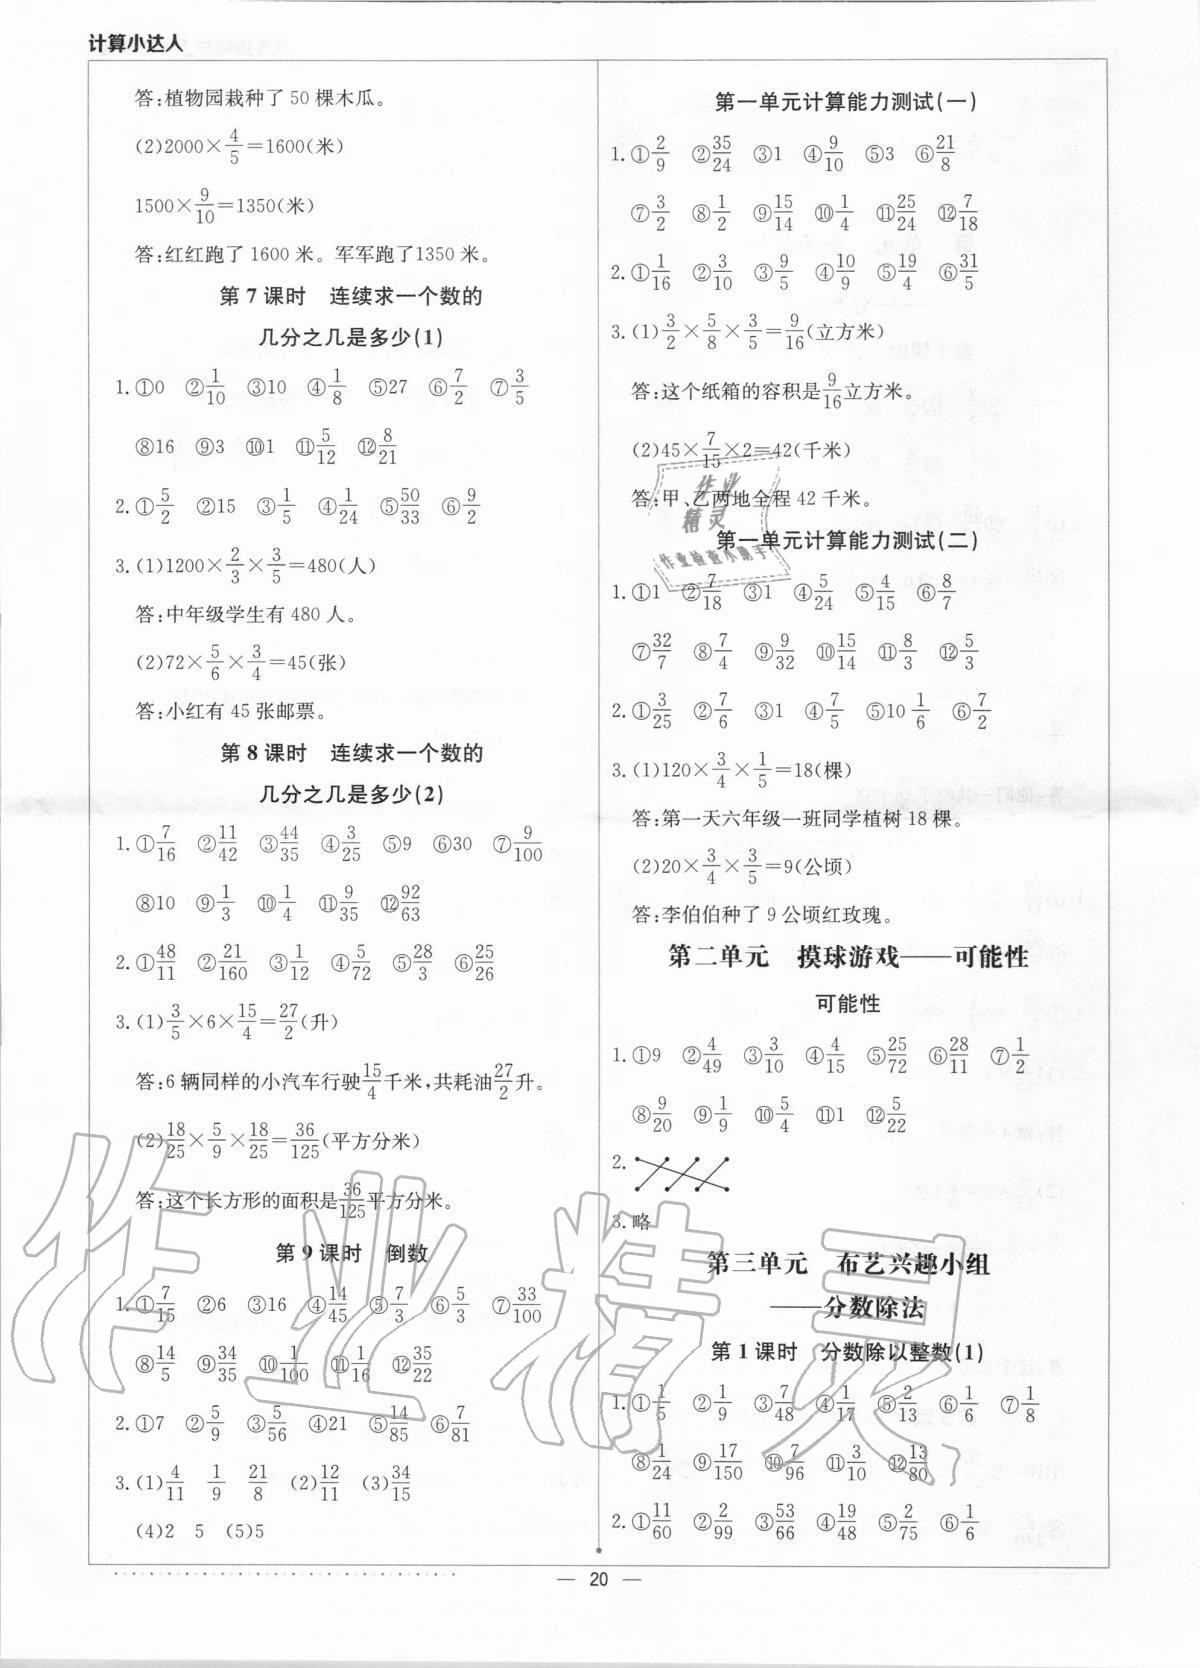 计算小达人
答:植物园栽种了 50 棵木瓜。
(2)2000×4/5=1600(米)
1500×9/10=1350(米)
答:红红跑了 1600 米。军军跑了1350 米。
第 7 课时 连续求一个数的
几分之几是多少(1)
1.①0 ②1/10 ③10 ④1/8 ⑤27 ⑥7/2 ⑦3/5
⑧16 ⑨3 ⑩1 ⑪5/12 ⑫8/21
2.①5/2 ②15 ③1/5 ④1/24 ⑤50/33 ⑥9/2
3.(1)1200×2/3×3/5=480(人)
答:中年级学生有 480 人。
(2)72×5/6×3/4=45(张)
答:小红有 45 张邮票。
第 8 课时 连续求一个数的
几分之几是多少(2)
1.①7/16 ②11/42 ③44/35 ④3/25 ⑤9 ⑥30 ⑦9/100
⑧10 ⑨1/3 ⑩1/4 ⑪9/35 ⑫92/63
2.①48/11 ②21/160 ③1/12 ④5/72 ⑤28/3 ⑥25/26
3.(1)3/5×6×15/4=27/2(升)
答:6 辆同样的小汽车行驶15/4千米,共耗油27/2升。
(2)18/25×5/9×18/25=36/125(平方分米)
答:这个长方形的面积是36/125平方分米。
第 9 课时 倒数
1.①7/15 ②6 ③16 ④14/45 ⑤7/3 ⑥5/3 ⑦33/100
⑧14/5 ⑨34/35 ⑩1/100 ⑪1/16 ⑫35/22
2.①7 ②5/9 ③5/56 ④21 ⑤14/85 ⑥7/81
3.(1)4/11 1/9 21/8 (2)12/11 (3)34/15
(4)2 5 (5)5
第一单元计算能力测试(一)
1.①2/9 ②35/24 ③1 ④9/10 ⑤3 ⑥21/8
⑦3/2 ⑧1/2 ⑨15/14 ⑩1/4 ⑪25/24 ⑫7/18
2.①1/16 ②3/10 ③9/5 ④10/9 ⑤19/4 ⑥31/5
3.(1)3/2×5/8×3/5=9/16(立方米)
答:这个纸箱的容积是9/16立方米。
(2)45×7/15×2=42(千米)
答:甲、乙两地全程 42 千米。
作业
精灵
作业检查小助手
第一单元计算能力测试(二)
1.①1 ②7/18 ③1 ④5/24 ⑤4/15 ⑥8/7
⑦32/7 ⑧7/4 ⑨9/32 ⑩15/14 ⑪8/3 ⑫5/3
2.①3/25 ②7/6 ③1 ④7/5 ⑤10 1/6 ⑥7/2
3.(1)120×3/4×1/5=18(棵)
答:第一天六年级一班同学植树 18 棵。
(2)20×3/4×3/5=9(公顷)
答:李伯伯种了 9 公顷红玫瑰。
第二单元 摸球游戏——可能性
可能性
1.①9 ②4/49 ③3/10 ④4/15 ⑤25/72 ⑥28/11 ⑦1/2
⑧9/20 ⑨1/9 ⑩5/4 ⑪1 ⑫5/22
2.
3.略
第三单元 布艺兴趣小组
——分数除法
第 1 课时 分数除以整数(1)
1.①1/5 ②1/9 ③7/48 ④1/17 ⑤2/13 ⑥1/6 ⑦1/8
⑧1/24 ⑨17/150 ⑩7/96 ⑪3/10 ⑫13/80
2.①11/60 ②2/99 ③53/66 ④19/48 ⑤2/75 ⑥1/6
作业精灵
— 20 —